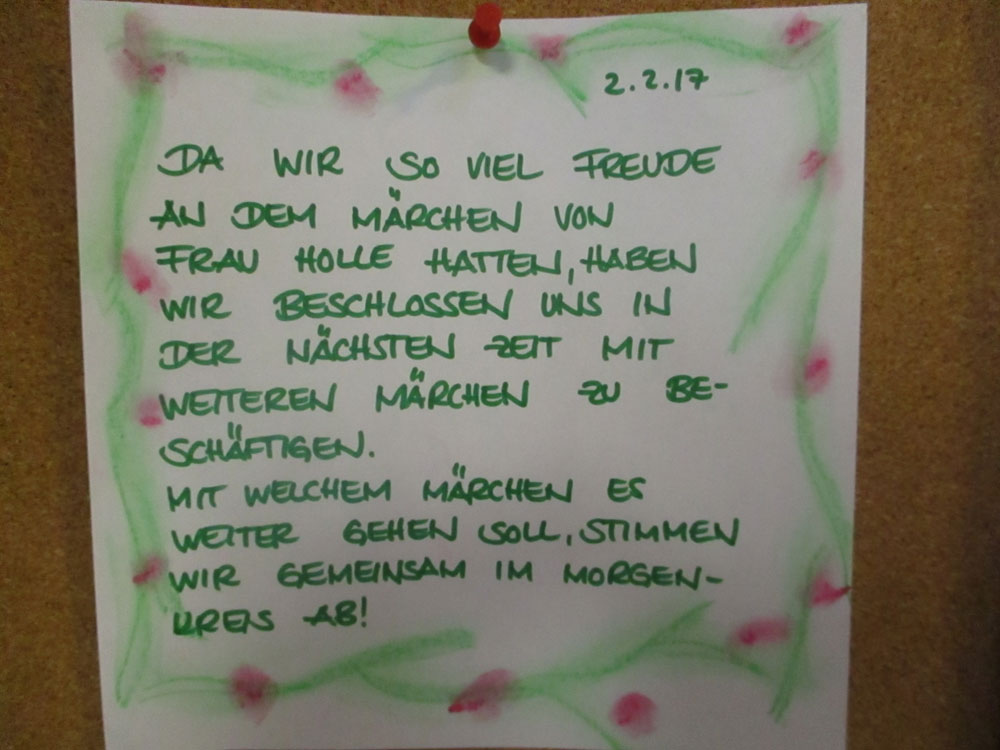 2.2.17
DA WIR SO VIEL FREUDE
AN DEM MÄRCHEN VON
FRAU HOLLE HATTEN, HABEN
WIR BESCHLOSSEN UNS IN
DER NÄCHSTEN ZEIT MIT
WEITEREN MÄRCHEN ZU BE-
SCHÄFTIGEN.
MIT WELCHEM MÄRCHEN ES
WEITER GEHEN SOLL, STIMMEN
WIR GEMEINSAM IM MORGEN-
KREIS AB!